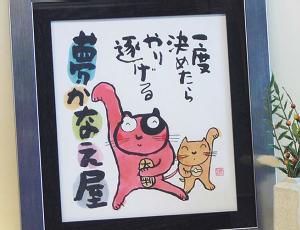 一度
決めたら
やり
遂げる
夢かなえ屋